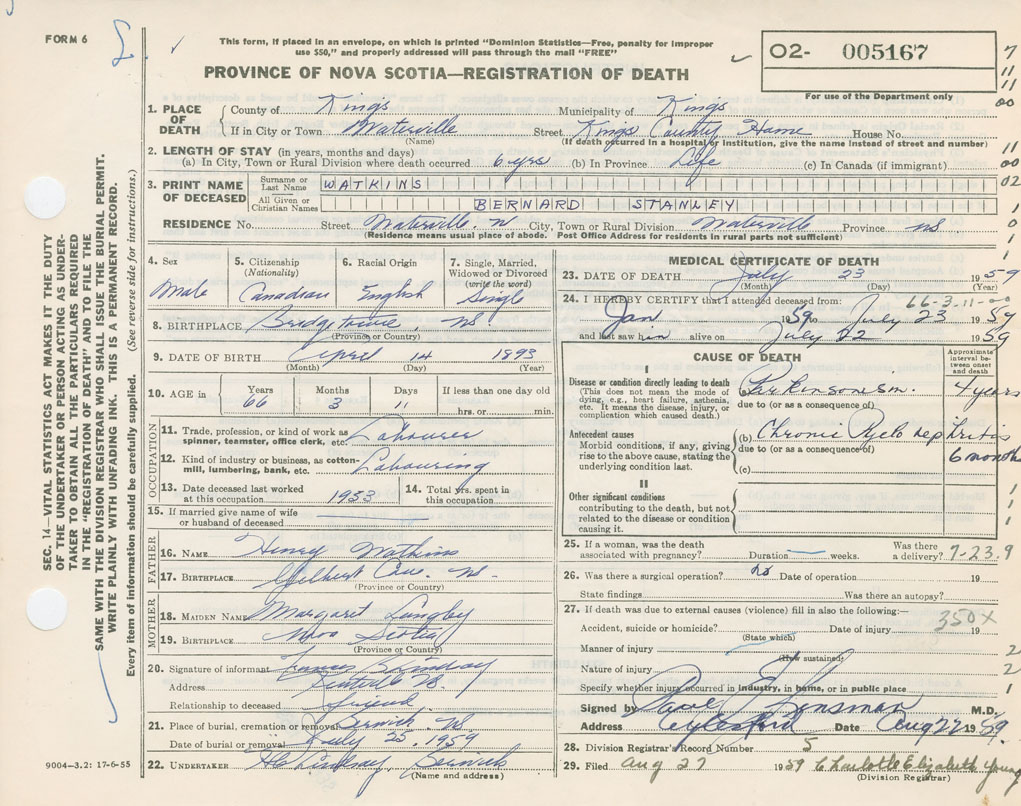 FORM 6
This form, if placed in an envelope, on which is printed "Dominion Statistics—Free, penalty for improper
use $50," and properly addressed will pass through the mail "FREE"
PROVINCE OF NOVA SCOTIA—REGISTRATION OF DEATH
02- 005167
For use of the Department only
7
11
11
00
SEC. 14—VITAL STATISTICS ACT MAKES IT THE DUTY
OF THE UNDERTAKER OR PERSON ACTING AS UNDER-
TAKER TO OBTAIN ALL THE PARTICULARS REQUIRED
IN THE "REGISTRATION OF DEATH" AND TO FILE THE
SAME WITH THE DIVISION REGISTRAR WHO SHALL ISSUE THE BURIAL PERMIT.
WRITE PLAINLY WITH UNFADING INK. THIS IS A PERMANENT RECORD.
Every item of information should be carefully supplied. (See reverse side for instructions.)
1. PLACE OF DEATH County of Kings Municipality of Kings
If in City or Town Waterville Street Kings County Home House No.
(Name) (If death occurred in a hospital or institution, give the name instead of street and number)
2. LENGTH OF STAY (in years, months and days) 11
(a) In City, Town or Rural Division where death occurred 6 yrs (b) In Province Life (c) In Canada (if immigrant) 00
3. PRINT NAME OF DECEASED Surname or Last Name WATKINS 02
All Given or Christian Names BERNARD STANLEY 1
RESIDENCE No. Street Waterville City, Town or Rural Division Waterville Province NS 0
(Residence means usual place of abode. Post Office Address for residents in rural parts not sufficient) 1
4. Sex Male
5. Citizenship (Nationality) Canadian
6. Racial Origin English
7. Single, Married, Widowed or Divorced (write the word) Single
8. BIRTHPLACE Bridgetown, NS.
(Province or Country)
9. DATE OF BIRTH April 14 1893
(Month) (Day) (Year)
10. AGE in Years 66 Months 3 Days 11 If less than one day old hrs. or min.
OCCUPATION
11. Trade, profession, or kind of work as spinner, teamster, office clerk, etc. Labourer
12. Kind of industry or business, as cotton-mill, lumbering, bank, etc. Labouring
13. Date deceased last worked at this occupation 1953 14. Total yrs. spent in this occupation
15. If married give name of wife or husband of deceased
FATHER
16. NAME Henry Watkins
17. BIRTHPLACE Gilbert Cove. NS.
(Province or Country)
MOTHER
18. MAIDEN NAME Margaret Langley
19. BIRTHPLACE Nova Scotia
(Province or Country)
20. Signature of informant Frances B Lindsay
Address NS.
Relationship to deceased friend
21. Place of burial, cremation or removal Berwick, NS
Date of burial or removal July 25, 1959
22. UNDERTAKER Lindsay Berwick
(Name and address)
9004—3.2: 17-6-55
MEDICAL CERTIFICATE OF DEATH
23. DATE OF DEATH July 23 1959
(Month) (Day) (Year)
66-3-11-00
24. I HEREBY CERTIFY that I attended deceased from:
Jan 1959 to July 23 1959
and last saw him alive on July 22 1959
CAUSE OF DEATH Approximate interval between onset and death
I
Disease or condition directly leading to death
(This does not mean the mode of dying, e.g., heart failure, asthenia, etc. It means the disease, injury, or complication which caused death.)
Parkinsonism. 4 years
due to (or as a consequence of)
Antecedent causes
Morbid conditions, if any, giving rise to the above cause, stating the underlying condition last.
(b) Chronic Pyelonephritis
due to (or as a consequence of) 6 months
(c)
II
Other significant conditions contributing to the death, but not related to the disease or condition causing it.
1
1
1
25. If a woman, was the death associated with pregnancy? Duration weeks. Was there a delivery? 7-23.9
26. Was there a surgical operation? no Date of operation 19
State findings Was there an autopsy?
27. If death was due to external causes (violence) fill in also the following:—
350X
Accident, suicide or homicide? Date of injury 19
(State which)
Manner of injury 2
(How sustained)
Nature of injury 2
Specify whether injury occurred in industry, in home, or in public place 1
Signed by Paul Kinsman M.D.
Address Aylesford Date Aug 22 1959.
28. Division Registrar's Record Number 5
29. Filed Aug 27 1959 Charlotte Elizabeth Young
(Division Registrar)